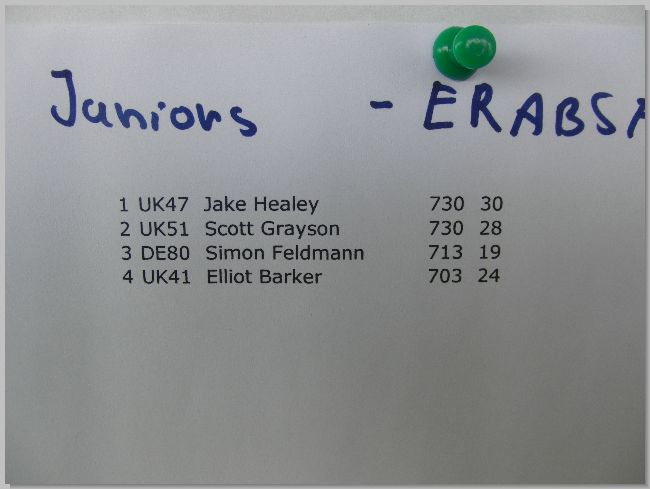 Juniors - ERABSF
1 UK47 Jake Healey 730 30
2 UK51 Scott Grayson 730 28
3 DE80 Simon Feldmann 713 19
4 UK41 Elliot Barker 703 24